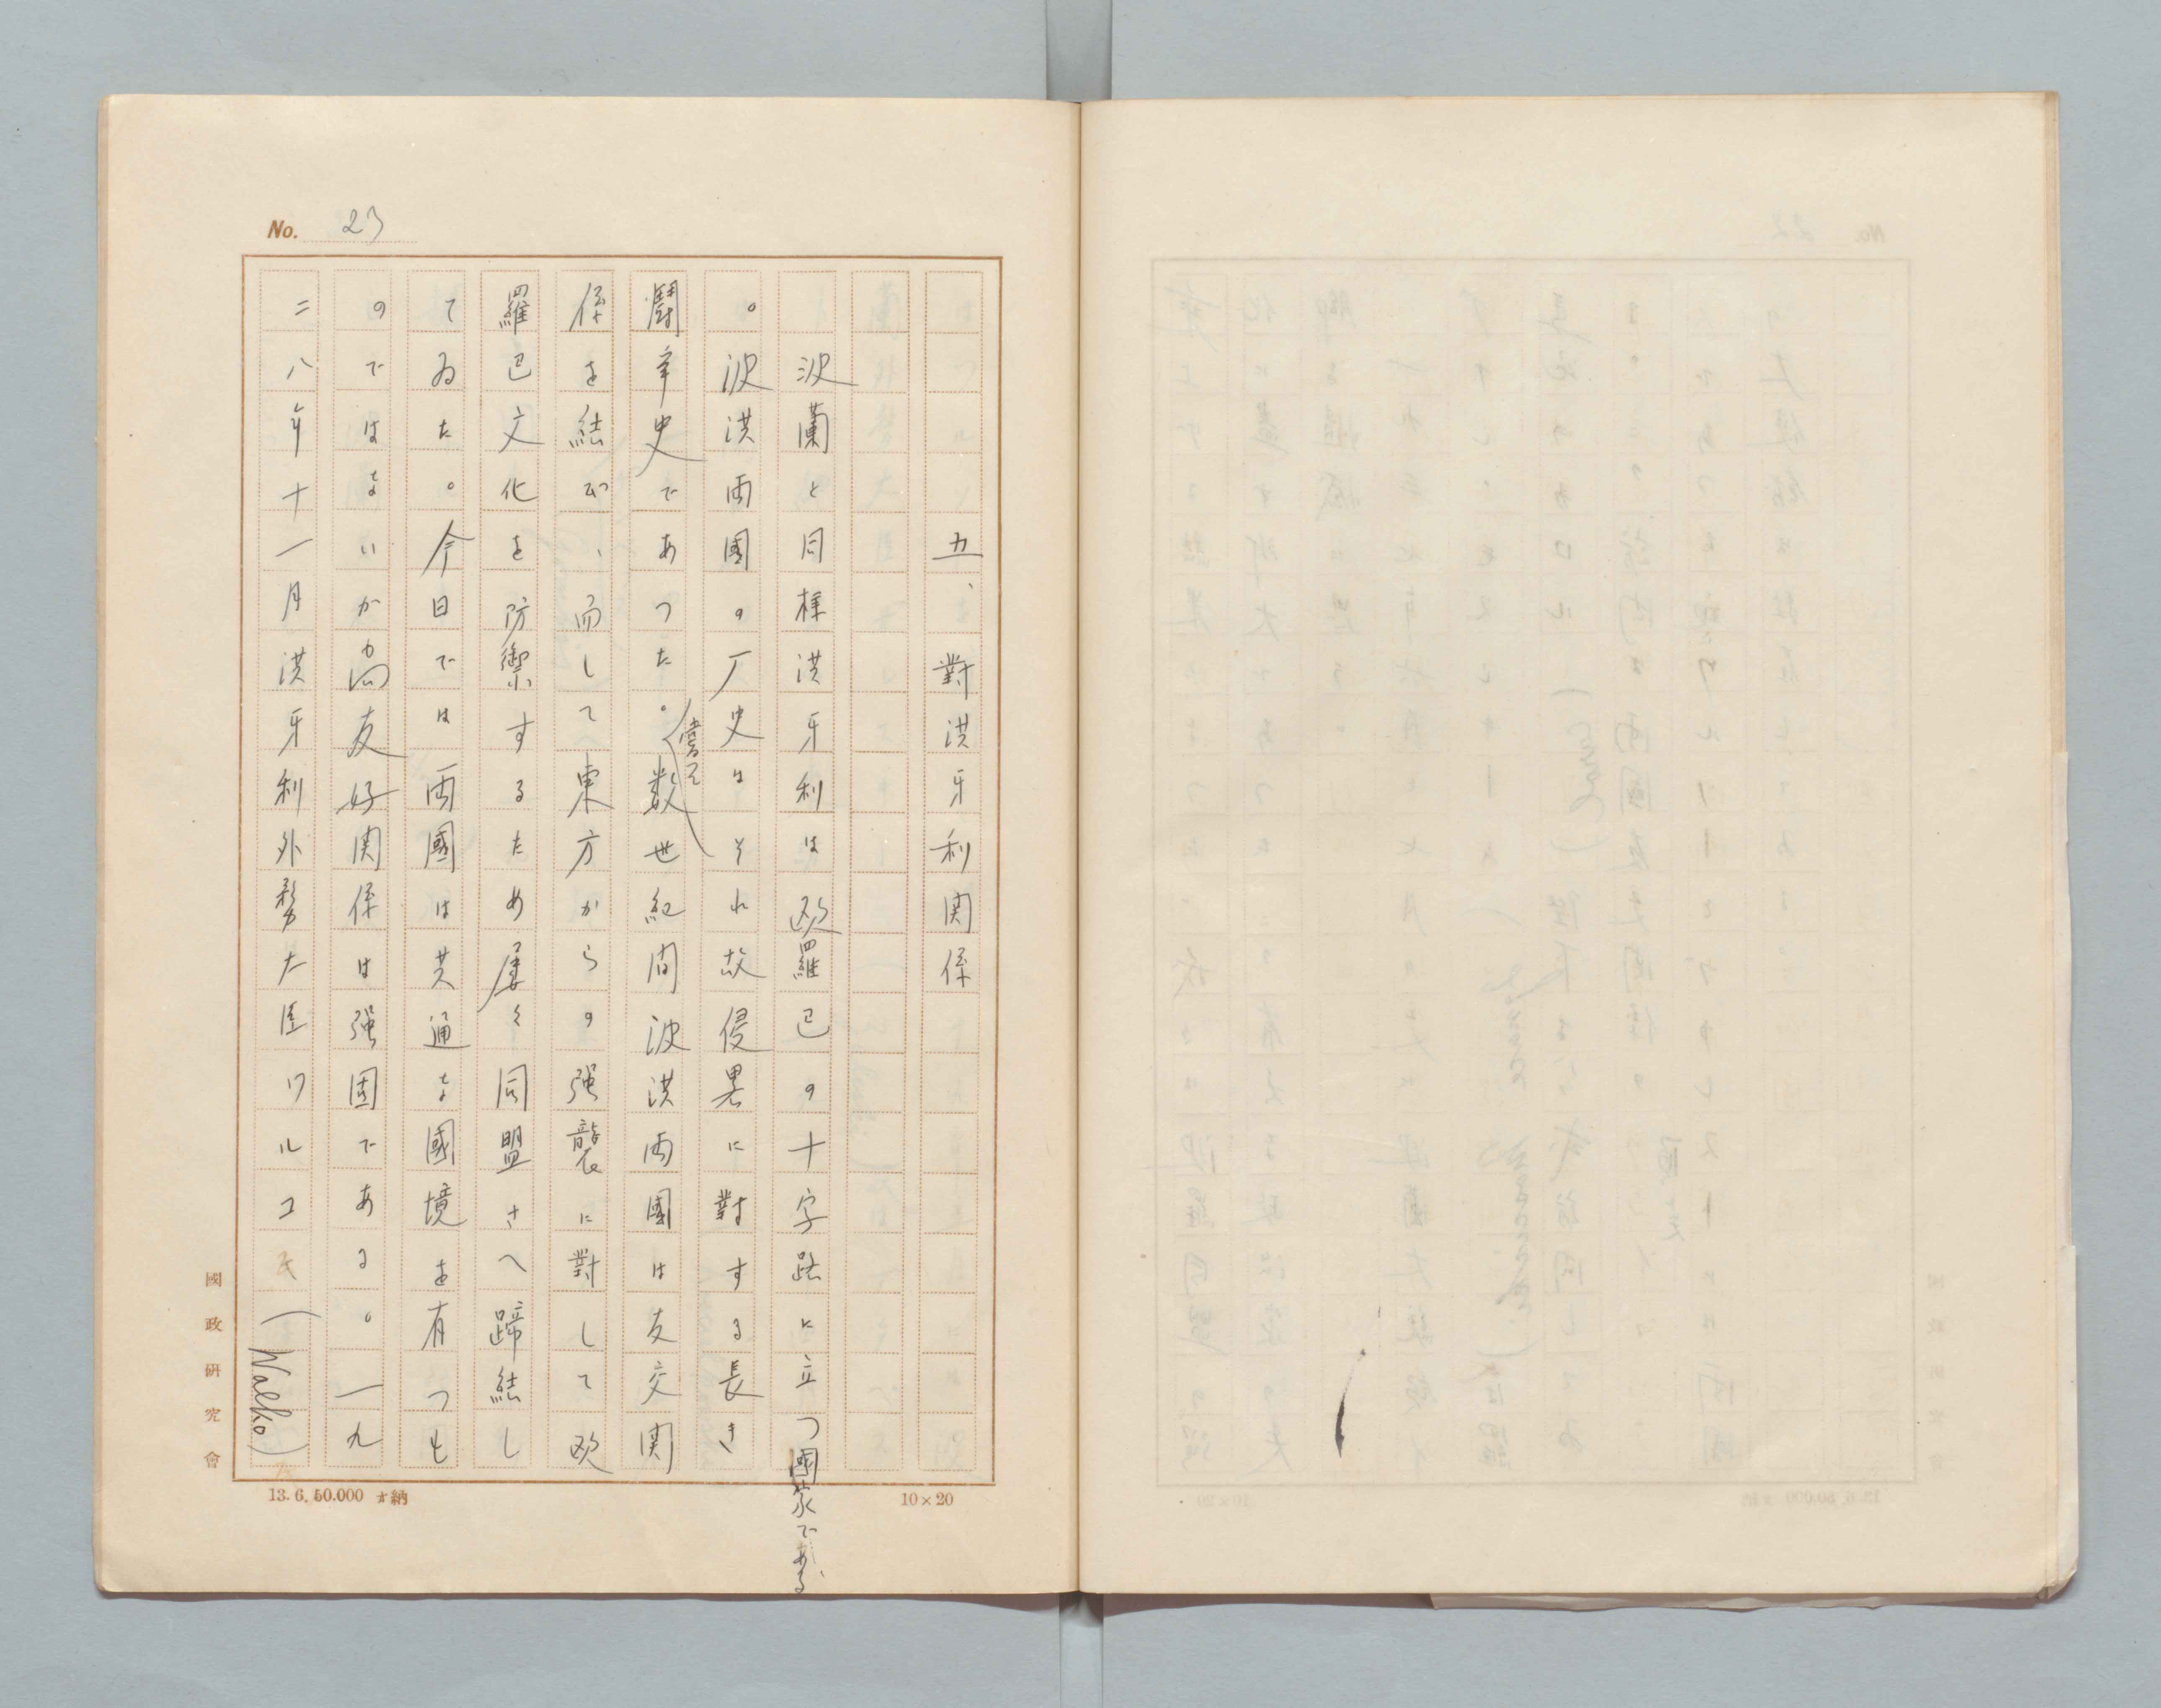 No. 23
五、對洪牙利関係
波蘭と同様洪牙利は欧羅巴の十字路に立つ國家である
。波洪両國の厂史はそれ故侵畧に對する長き
闘争史であつた。嘗つて数世紀間波洪両國は友交関
係を結び、而して東方からの強襲に對して欧
羅巴文化を防禦するため屢々同盟さへ締結し
てゐた。今日では両國は共通な國境を有つも
のではないが為友好関係は强固である。一九
二八年十一月洪牙利外務大臣ワルコ氏(Walko)
國政研究會
13.6.50.000 納
10×20